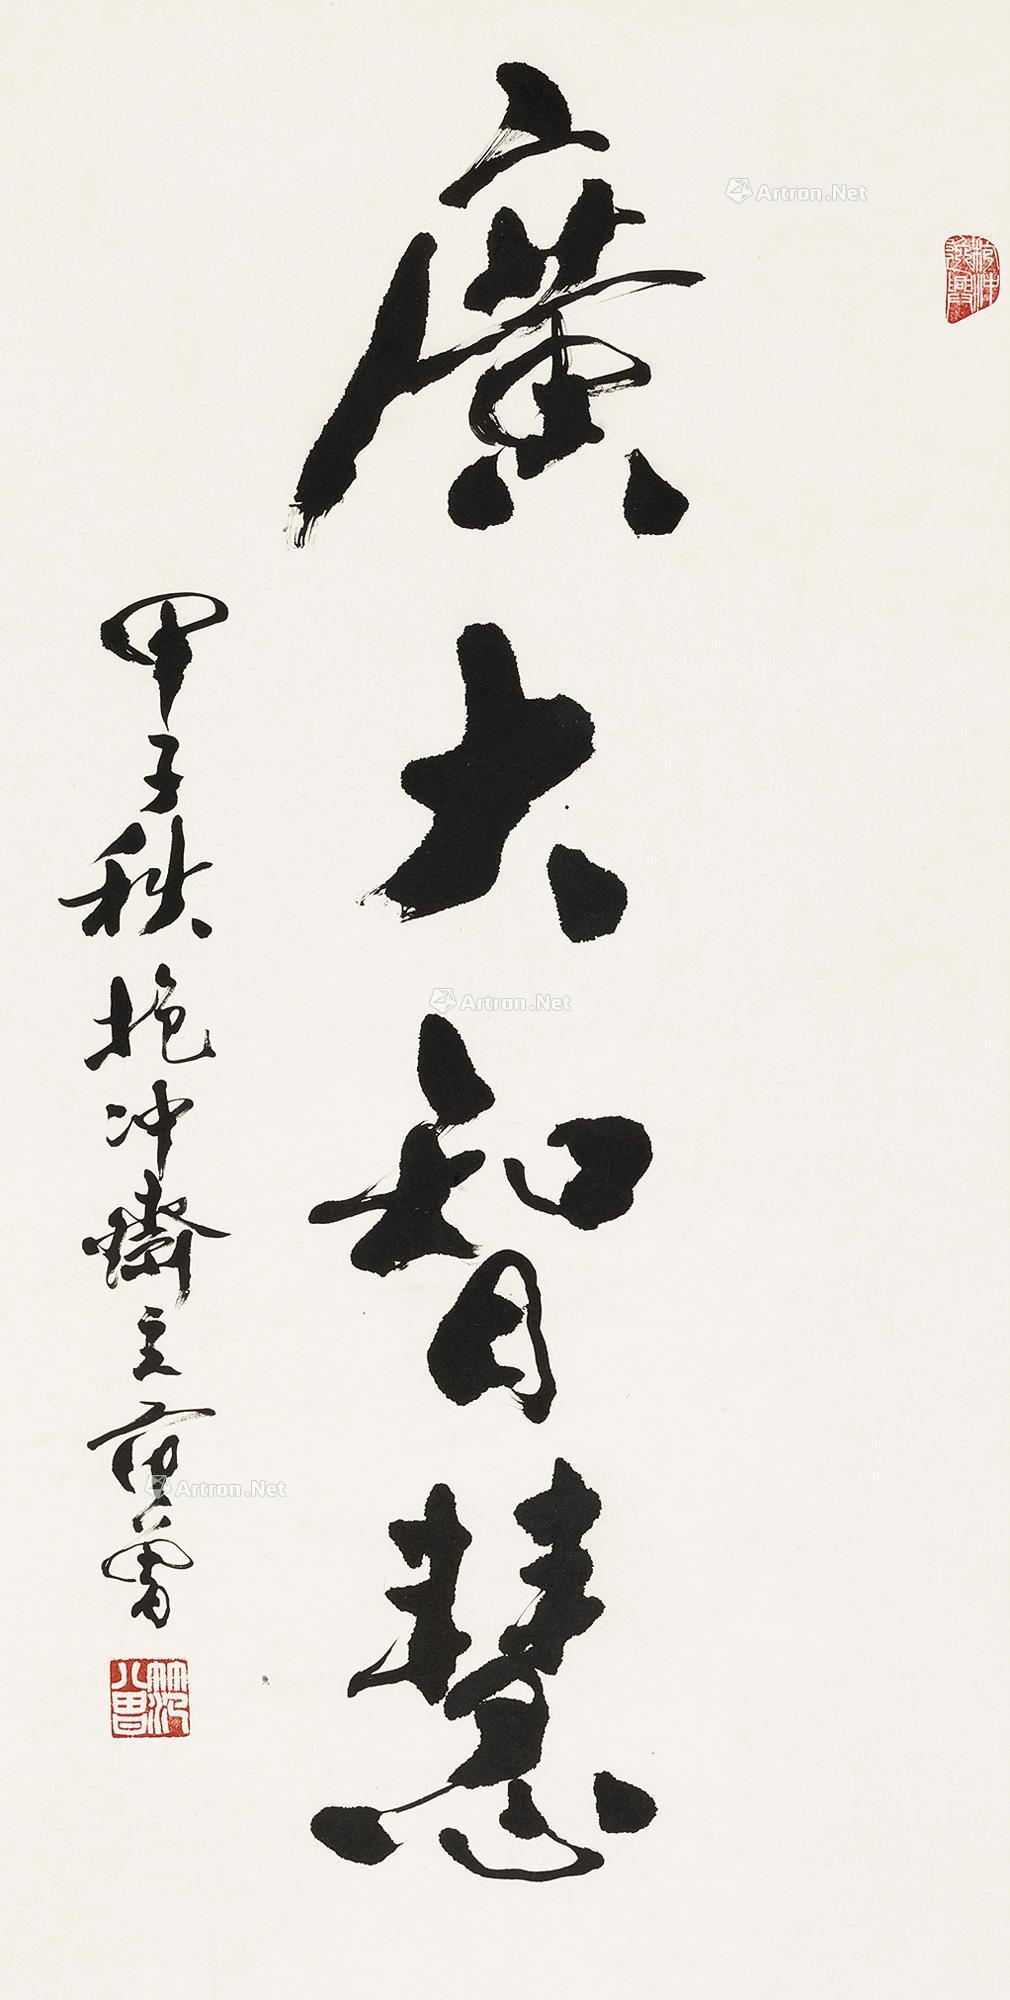 廣大智慧
甲子秋抱冲齋主范曾
范曾
Artron.Net
Artron.Net
Artron.Net